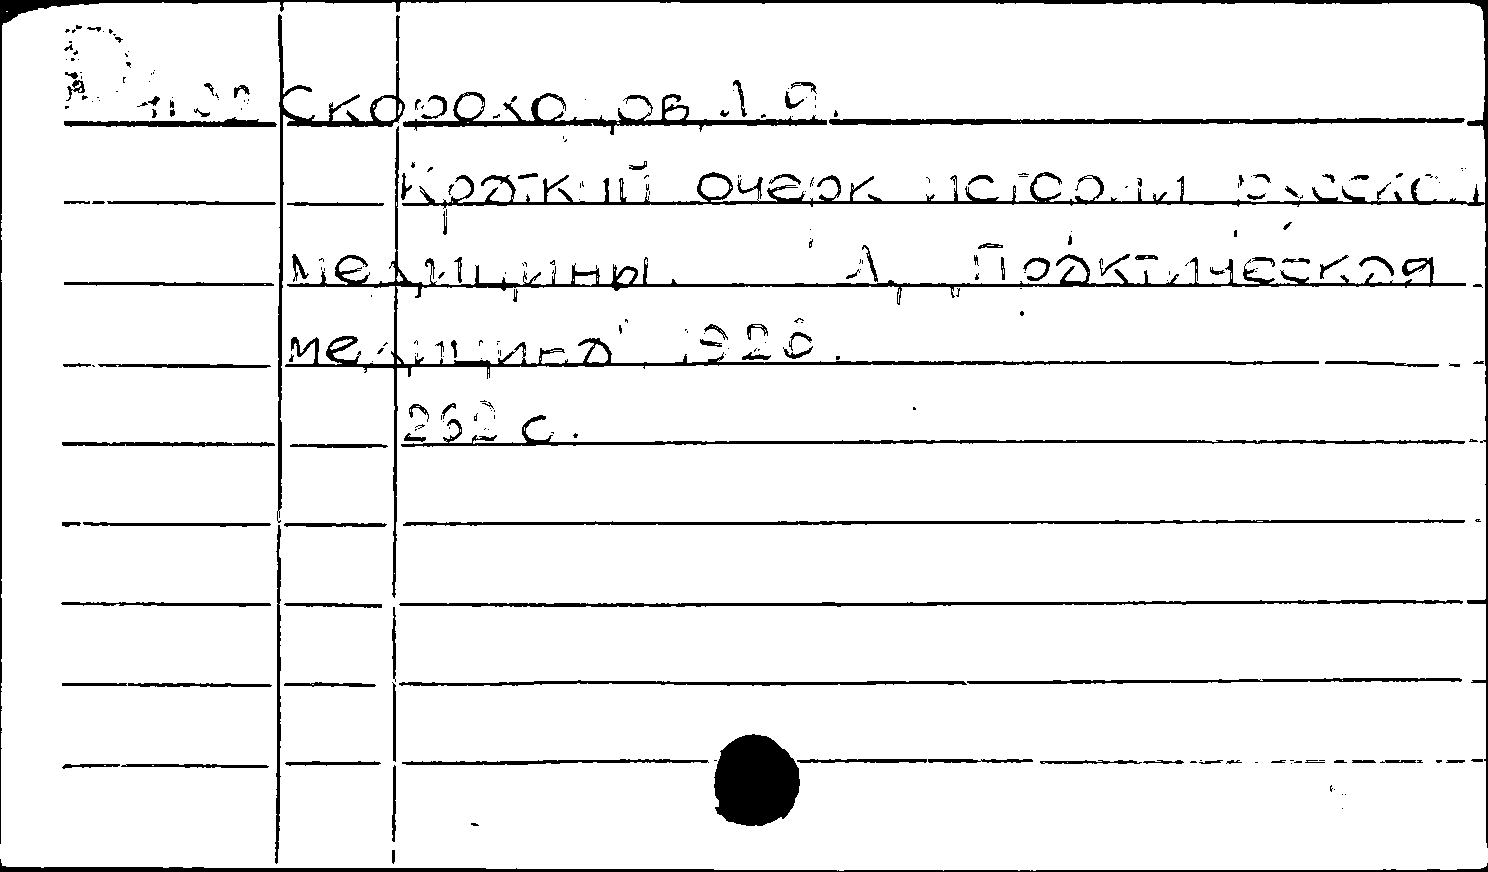 Скороходов Л.Я.
Краткий очерк истории русской
медицины. Л., „Практическая
медицина" 1926.
262 с.